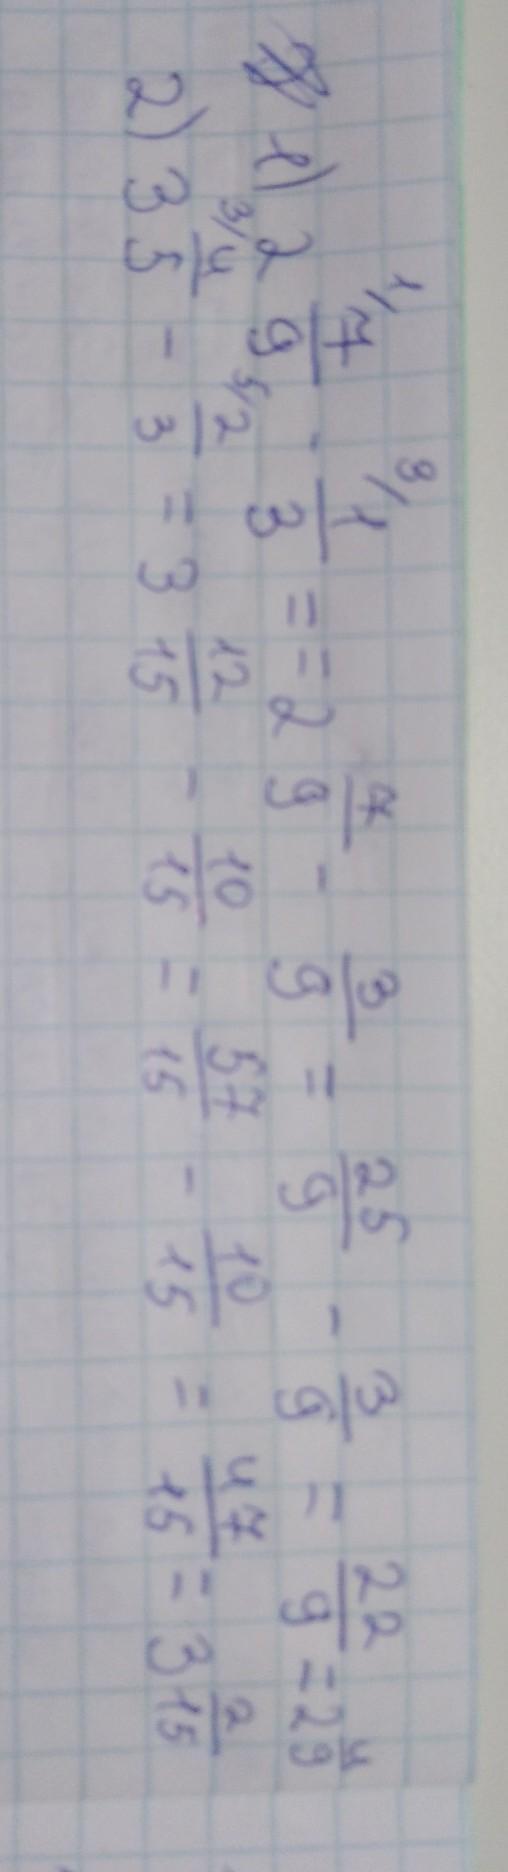 1) 2 7/9 - 1/3 = = 2 7/9 - 3/9 = 25/9 - 3/9 = 22/9 = 2 4/9
2) 3 4/5 - 2/3 = 3 12/15 - 10/15 = 57/15 - 10/15 = 47/15 = 3 2/15